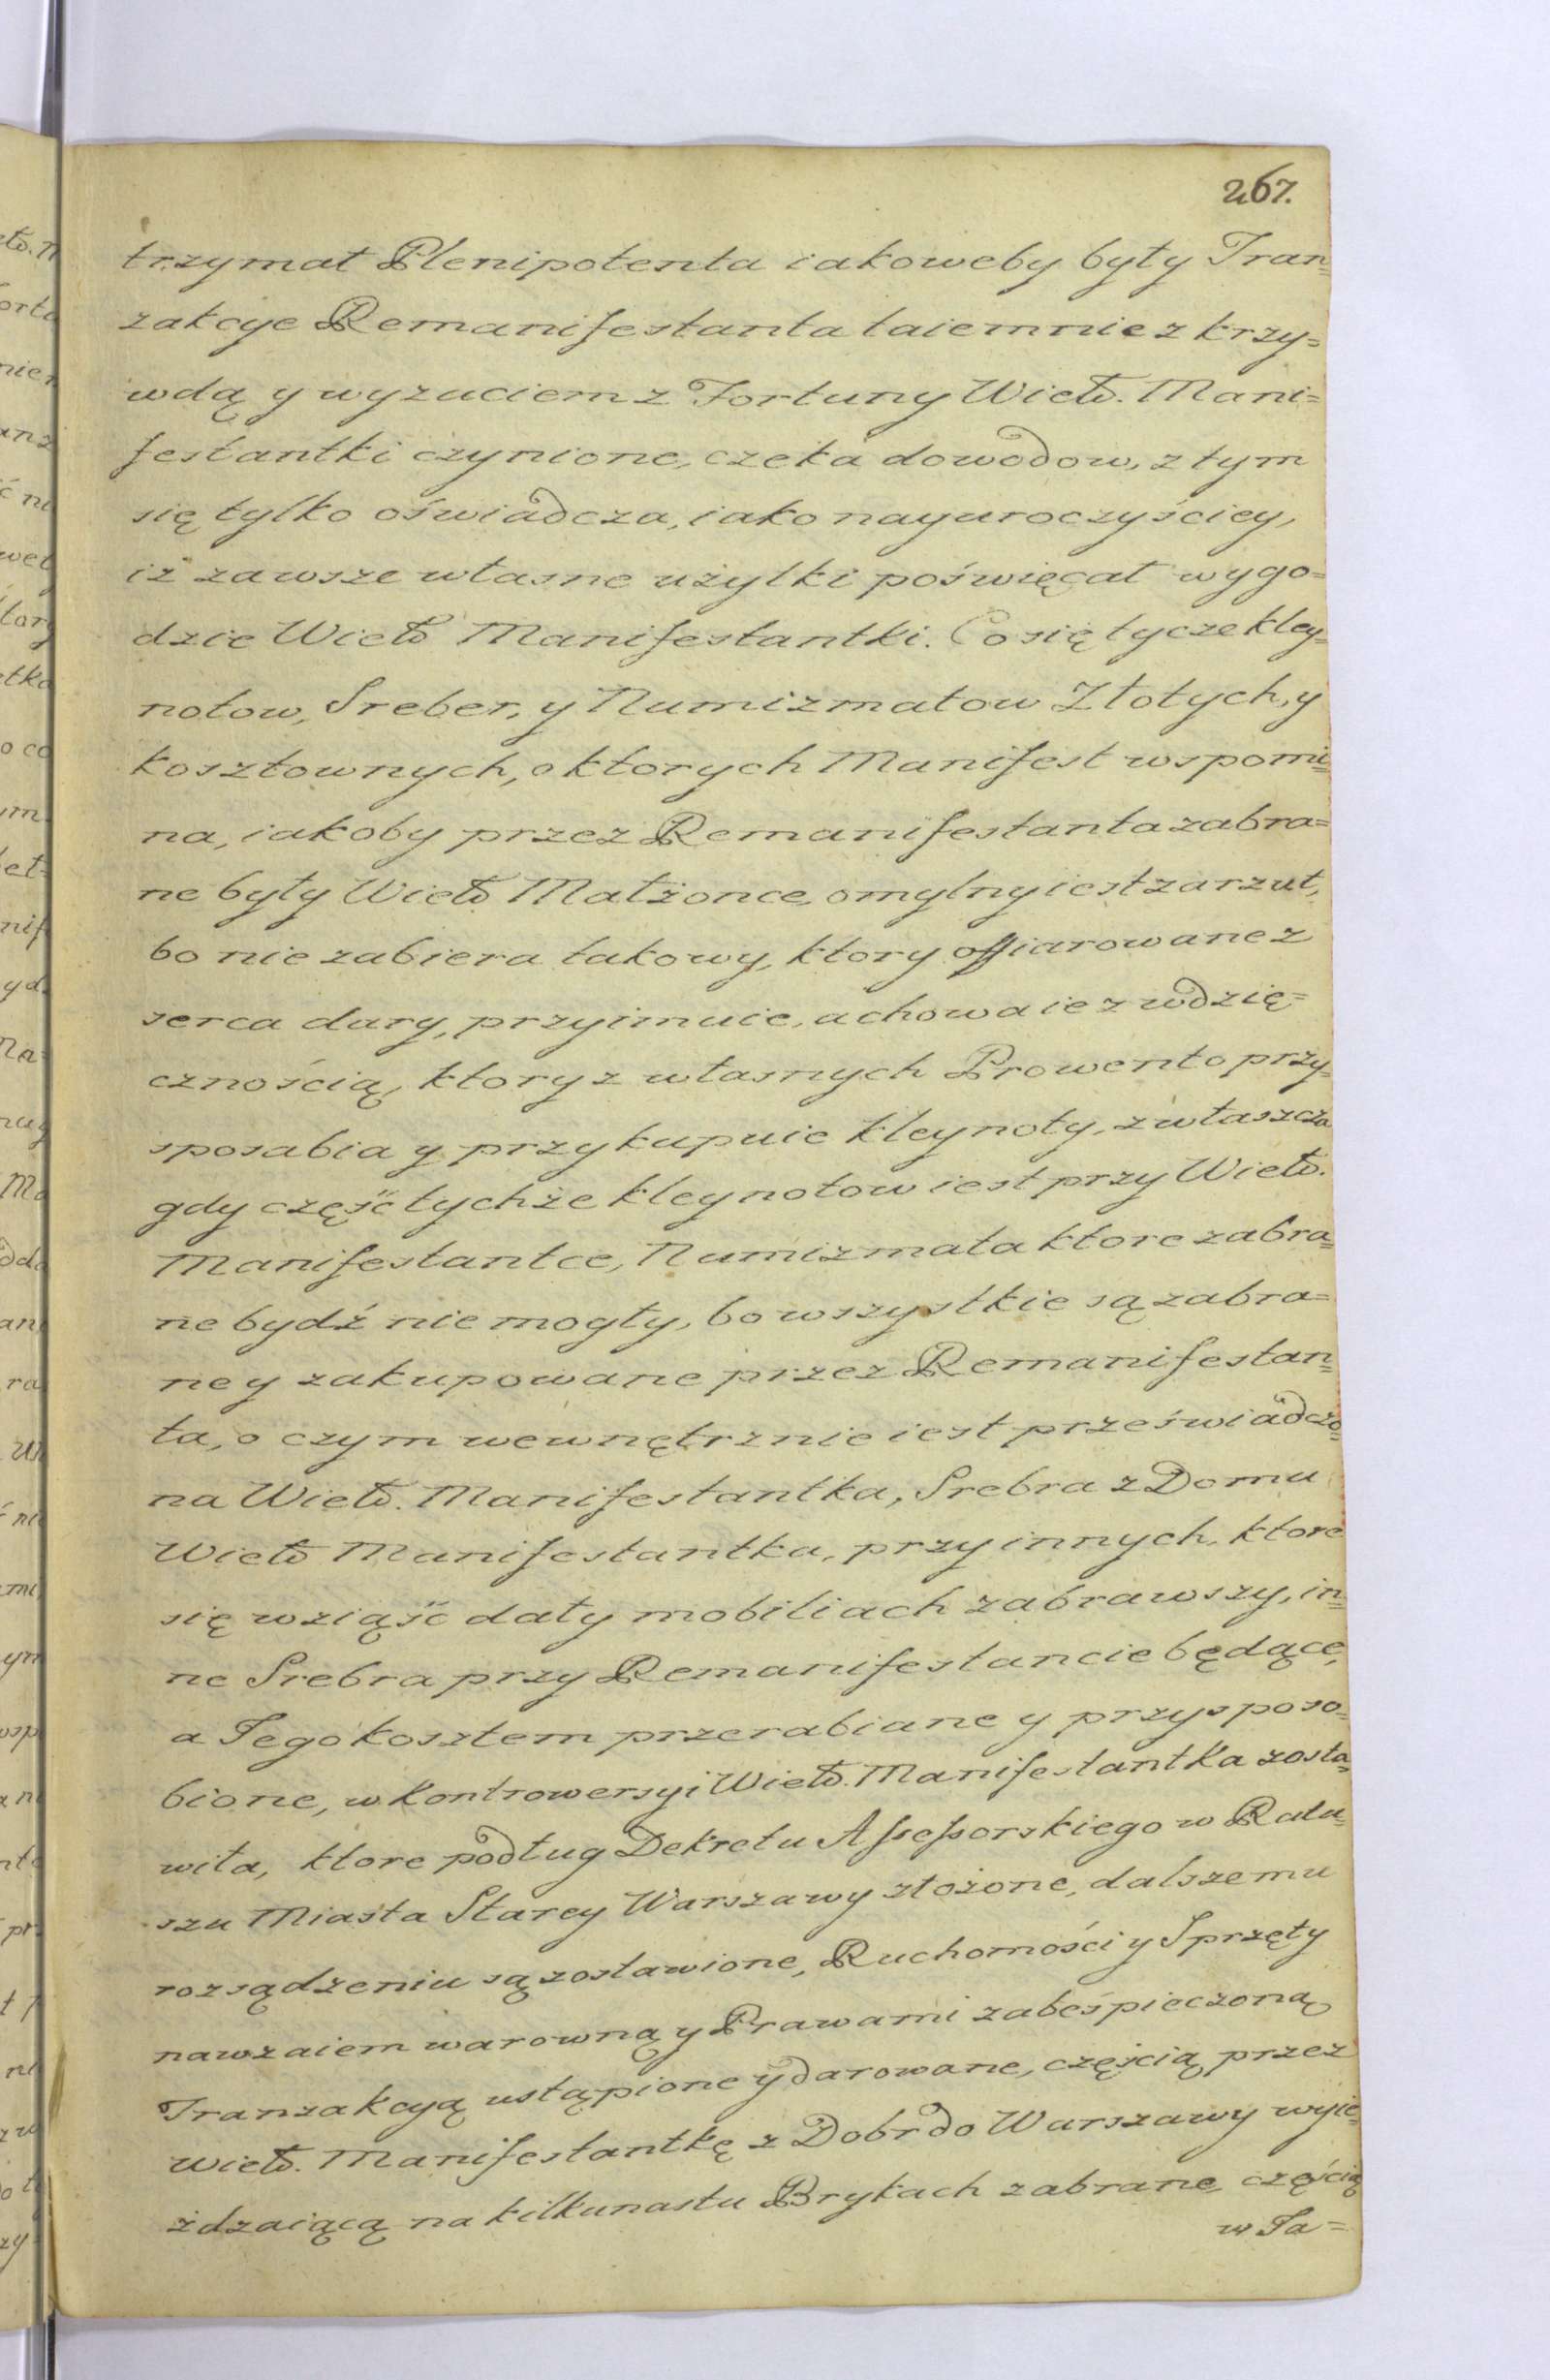 267.
trzymał Plenipotenta iakoweby były Tran=
zakcye Remanifestanta taiemnie z krzy=
wdą y wyzuciem z Fortuny Wielo. Mani=
festantki czynione, czeka dowodow, z tym
się tylko oświadcza, iako nayuroczyściey,
iż zawsze własne użytki poświęcał wygo=
dzie Wielo Manifestantki. Co się tycze kley=
notow, Sreber, y Numizmatow Złotych, y
kosztownych, o ktorych Manifest wspomi=
na, iakoby przez Remanifestanta zabra=
ne były Wielo Małżonce, omylny iest zarzut,
bo nie zabiera takowy, ktory offiarowane z
serca dary, przyimuie, a chowa ie z wdzię=
cznością, ktory z własnych Prowento przy=
sposabia y przykupuie kleynoty, zwłaszcza
gdy część tychże kleynotow iest przy Wielo.
Manifestantce, Numizmata ktore zabra=
ne bydź nie mogły, bo wszystkie są zabra=
ne y zakupowane przez Remanifestan=
ta, o czym wewnętrznie iest przeświadczo=
na Wielo. Manifestantka, Srebra z Domu
Wielo Manifestantka, przy innych, ktore
się wziąść dały mobiliach zabrawszy, in=
ne Srebra przy Remanifestancie będące,
a Jego kosztem przerabiane y przysposo=
bione, w kontrowersyi Wielo. Manifestantka zosta=
wiła, ktore podług Dekretu Assessorskiego w Ratu=
szu Miasta Starey Warszawy złożone, dalszemu
rozsądzeniu są zostawione, Ruchomości y Sprzęty
nawzaiem warowną y Prawami zabeśpieczoną
Tranzakcyą ustąpione y darowane, częścią przez
Wielo. Manifestantkę z Dobr do Warszawy wyie=
żdzaiącą na kilkunastu Brykach zabrane, częścią
w Ta=